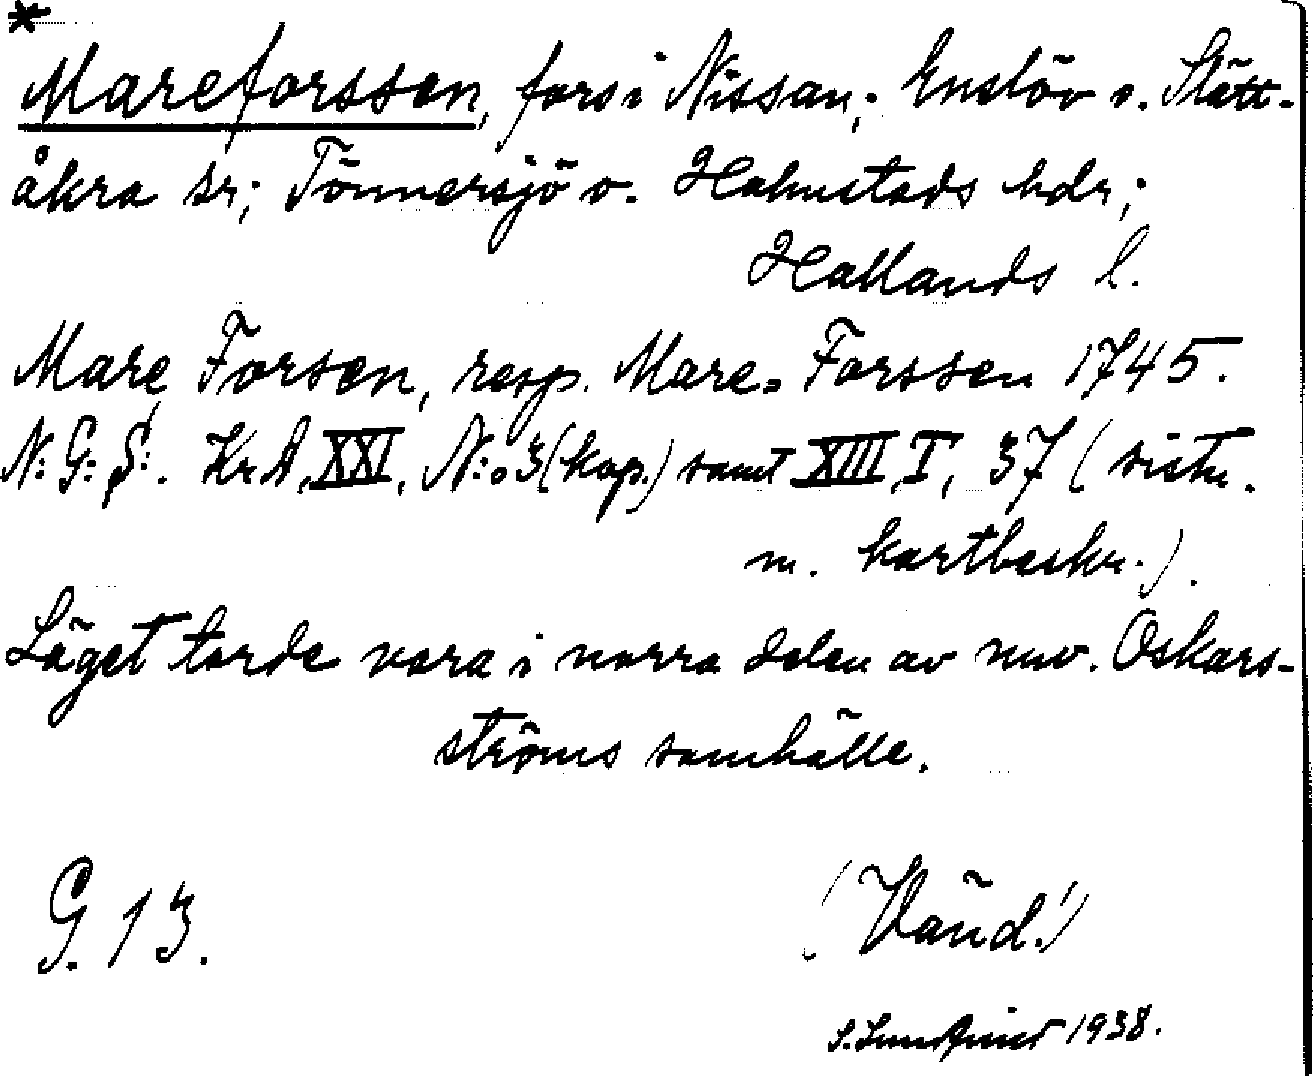 *
Mareforssen, fors i Nissan; Enslöv o. Slätt-
åkra sr; Tönnersjö o. Halmstads hdr;
Hallands l.
Mare Forsen, resp. Mare- Forssen 1745.
N: G: S:. Kr A, XXI, N:o 3 (kop.) samt XIII, I, 37 (sistn.
m. kartbeskr.).
Läget torde vara i norra delen av nuv. Oskars-
ströms samhälle.
G. 13.
(Vänd!)
S. Lundquist 1938.